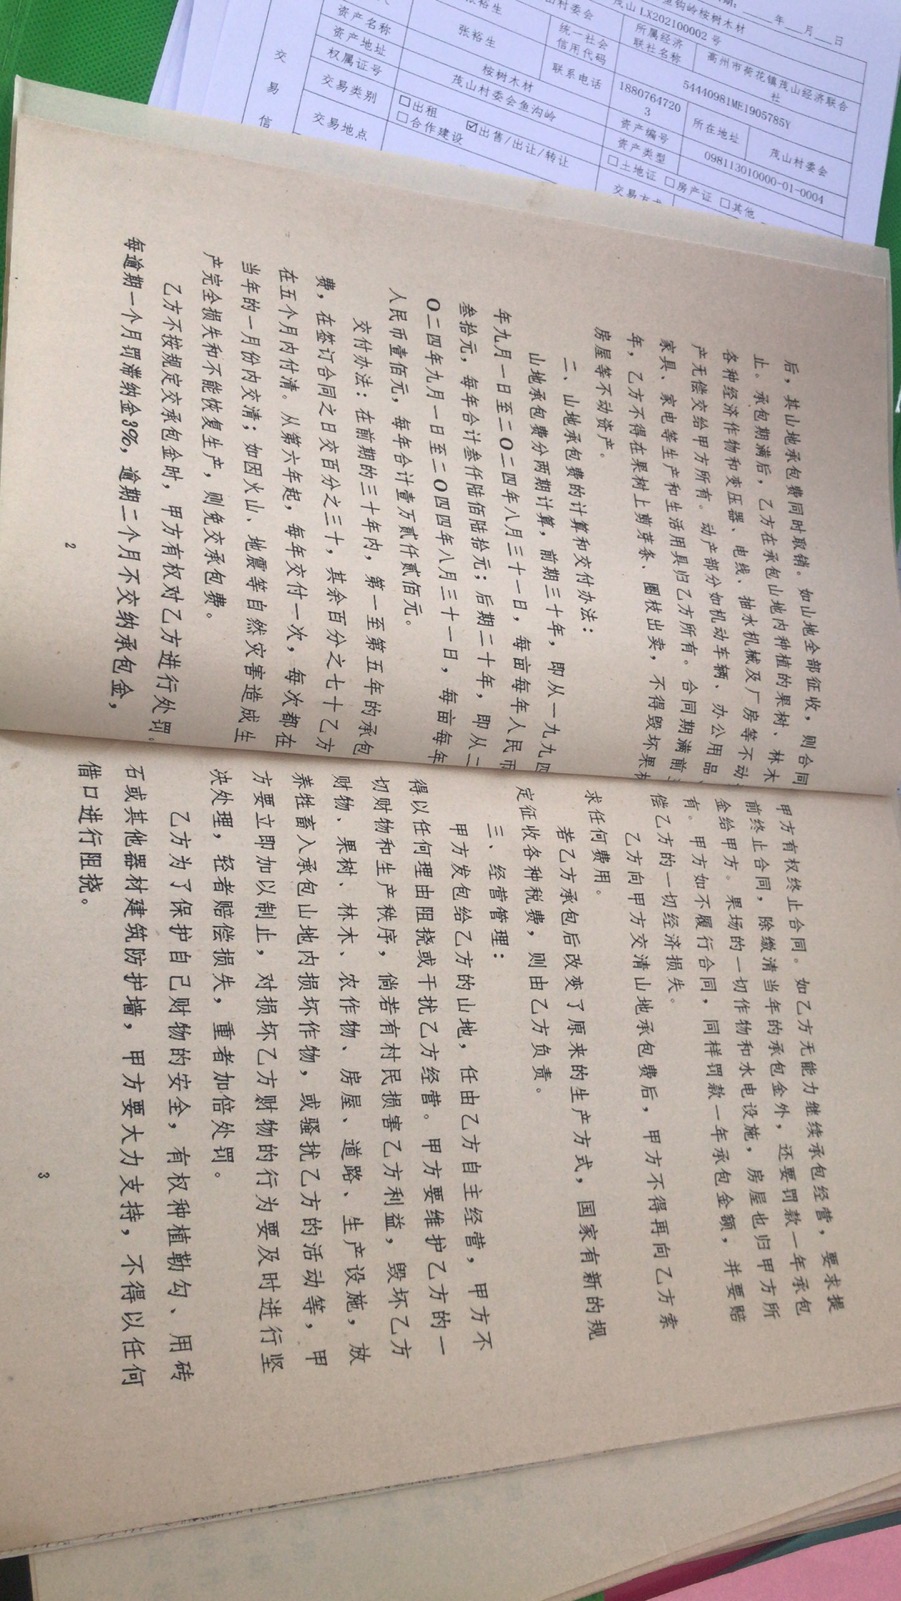 后，其山地承包费同时取销。如山地全部征收，则合同
止。承包期满后，乙方在承包山地内种植的果树、林木
各种经济作物和变压器、电线、抽水机械及厂房等不动
产无偿交给甲方所有。动产部分如机动车辆、办公用品
家具、家电等生产和生活用具归乙方所有。合同期满前
年，乙方不得在果树上剪芽条、圈枝出卖，不得毁坏果树
房屋等不动资产。
二、山地承包费的计算和交付办法：
山地承包费分两期计算，前期三十年，即从一九九四
年九月一日至二O二四年八月三十一日，每亩每年人民币
叁拾元，每年合计叁仟陆佰陆拾元；后期二十年，即从二
O二四年九月一日至二O四四年八月三十一日，每亩每年
人民币壹佰元，每年合计壹万贰仟贰佰元。
交付办法：在前期的三十年内，第一至第五年的承包
费，在签订合同之日交百分之三十，其余百分之七十乙方
在五个月内付清。从第六年起，每年交付一次，每次都在
当年的一月份内交清；如因火山、地震等自然灾害造成生
产完全损失和不能恢复生产，则免交承包费。
乙方不按规定交承包金时，甲方有权对乙方进行处罚.
每逾期一个月罚滞纳金3%，逾期二个月不交纳承包金，
2
甲方有权终止合同。如乙方无能力继续承包经营，要求提
前终止合同，除缴清当年的承包金外，还要罚款一年承包
金给甲方。果场的一切作物和水电设施，房屋也归甲方所
有。甲方如不履行合同，同样罚款一年承包金额，并要赔
偿乙方的一切经济损失。
乙方向甲方交清山地承包费后，甲方不得再向乙方索
求任何费用。
若乙方承包后改变了原来的生产方式，国家有新的规
定征收各种税费，则由乙方负责。
三、经营管理：
甲方发包给乙方的山地，任由乙方自主经营，甲方不
得以任何理由阻挠或干扰乙方经营。甲方要维护乙方的一
切财物和生产秩序，倘若有村民损害乙方利益，毁坏乙方
财物、果树、林木、农作物、房屋、道路、生产设施，放
养牲畜入承包山地内损坏作物，或骚扰乙方的活动等，甲
方要立即加以制止，对损坏乙方财物的行为要及时进行坚
决处理，轻者赔偿损失，重者加倍处罚。
乙方为了保护自己财物的安全，有权种植勒勾、用砖
石或其他器材建筑防护墙，甲方要大力支持，不得以任何
借口进行阻挠。
3
年 月 日
鱼钩岭桉树木材
茂山LX202100002号
山村委会
张裕生
资产名称
张裕生
统一社会
信用代码
所属经济
联社名称
高州市荷花镇茂山经济联合
社
资产地址
桉树木材
联系电话
1880764720
3
54440981ME1905785Y
权属证号
茂山村委会鱼沟岭
资产编号
所在地址
茂山村委会
交易类别
□出租 ☑出售/出让/转让
□合作建设
资产类型
098113010000-01-0004
交易地点
□土地证 □房产证 □其他
交易方式
交
易
信